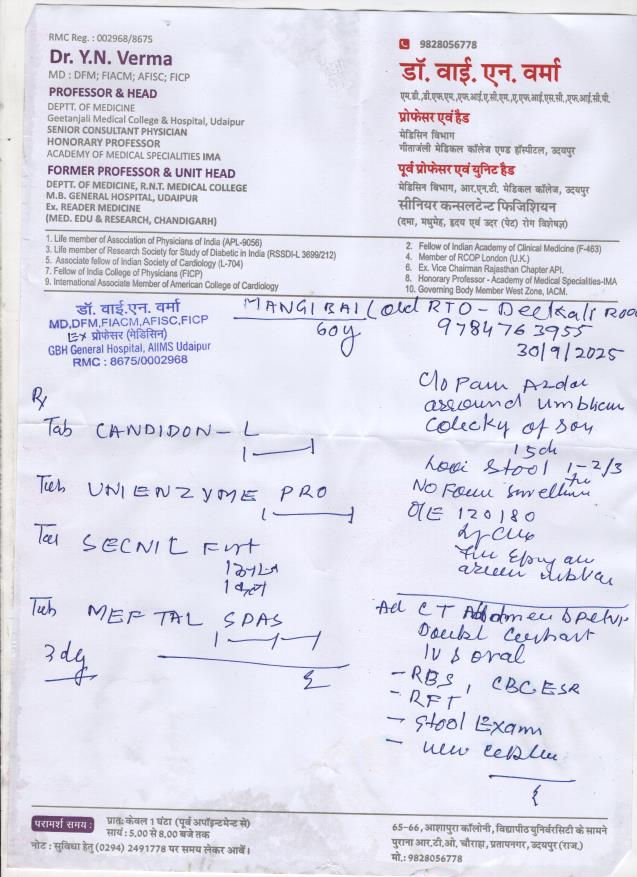 RMC Reg. : 002968/8675
Dr. Y.N. Verma
MD : DFM; FIACM; AFISC; FICP
PROFESSOR & HEAD
DEPTT. OF MEDICINE
Geetanjali Medical College & Hospital, Udaipur
SENIOR CONSULTANT PHYSICIAN
HONORARY PROFESSOR
ACADEMY OF MEDICAL SPECIALITIES IMA
FORMER PROFESSOR & UNIT HEAD
DEPTT. OF MEDICINE, R.N.T. MEDICAL COLLEGE
M.B. GENERAL HOSPITAL, UDAIPUR
Ex. READER MEDICINE
(MED. EDU & RESEARCH, CHANDIGARH)
9828056778
डॉ. वाई. एन. वर्मा
एम.डी.,डी.एफ.एम.,एफ.आई.ए.सी.एम.,ए.एफ.आई.एस.सी.,एफ.आई.सी.पी.
प्रोफेसर एवं हैड
मेडिसिन विभाग
गीतांजली मेडिकल कॉलेज एण्ड हॉस्पीटल, उदयपुर
पूर्व प्रोफेसर एवं युनिट हैड
मेडिसिन विभाग, आर.एन.टी. मेडिकल कॉलेज, उदयपुर
सीनियर कन्सलटेन्ट फिजिशियन
(दमा, मधुमेह, हृदय एवं उदर (पेट) रोग विशेषज्ञ)
1. Life member of Association of Physicians of India (APL-9056)
3. Life member of Research Society for Study of Diabetic in India (RSSDI-L 3699/212)
5. Associate fellow of Indian Society of Cardiology (L-704)
7. Fellow of India College of Physicians (FICP)
9. International Associate Member of American College of Cardiology
2. Fellow of Indian Academy of Clinical Medicine (F-463)
4. Member of RCOP London (U.K.)
6. Ex. Vice Chairman Rajasthan Chapter API.
8. Honorary Professor - Academy of Medical Specialities-IMA
10. Governing Body Member West Zone, IACM.
डॉ. वाई.एन. वर्मा
MD,DFM,FIACM,AFISC,FICP
Ex प्रोफेसर (मेडिसिन)
GBH General Hospital, AIIMS Udaipur
RMC : 8675/0002968
MANGI BAI ( old RTO -
60y 9784763955
30/9/2025
Rx
Tab CANDIDON - L
Tab UNIENZYME PRO
Tab SECNIL Fort
Tab MEFTAL SPAS
3 day
C/o Pain
around umblicus
colicky
15 d
Loose Stool 1-2/3
No
O/E 120/80
Ad CT Abdomen & Pelvis
Double Contrast
IV & oral
- RBS, CBC ESR
- RFT
- Stool Exam
परामर्श समय :
प्रातः केवल 1 घंटा (पूर्व अपॉइन्टमेन्ट से)
सायं : 5.00 से 8.00 बजे तक
नोट : सुविधा हेतु (0294) 2491778 पर समय लेकर आवें।
65-66, आशापुरा कॉलोनी, विद्यापीठ युनिर्वरसिटी के सामने
पुराना आर.टी.ओ. चौराहा, प्रतापनगर, उदयपुर (राज.)
मो.: 9828056778